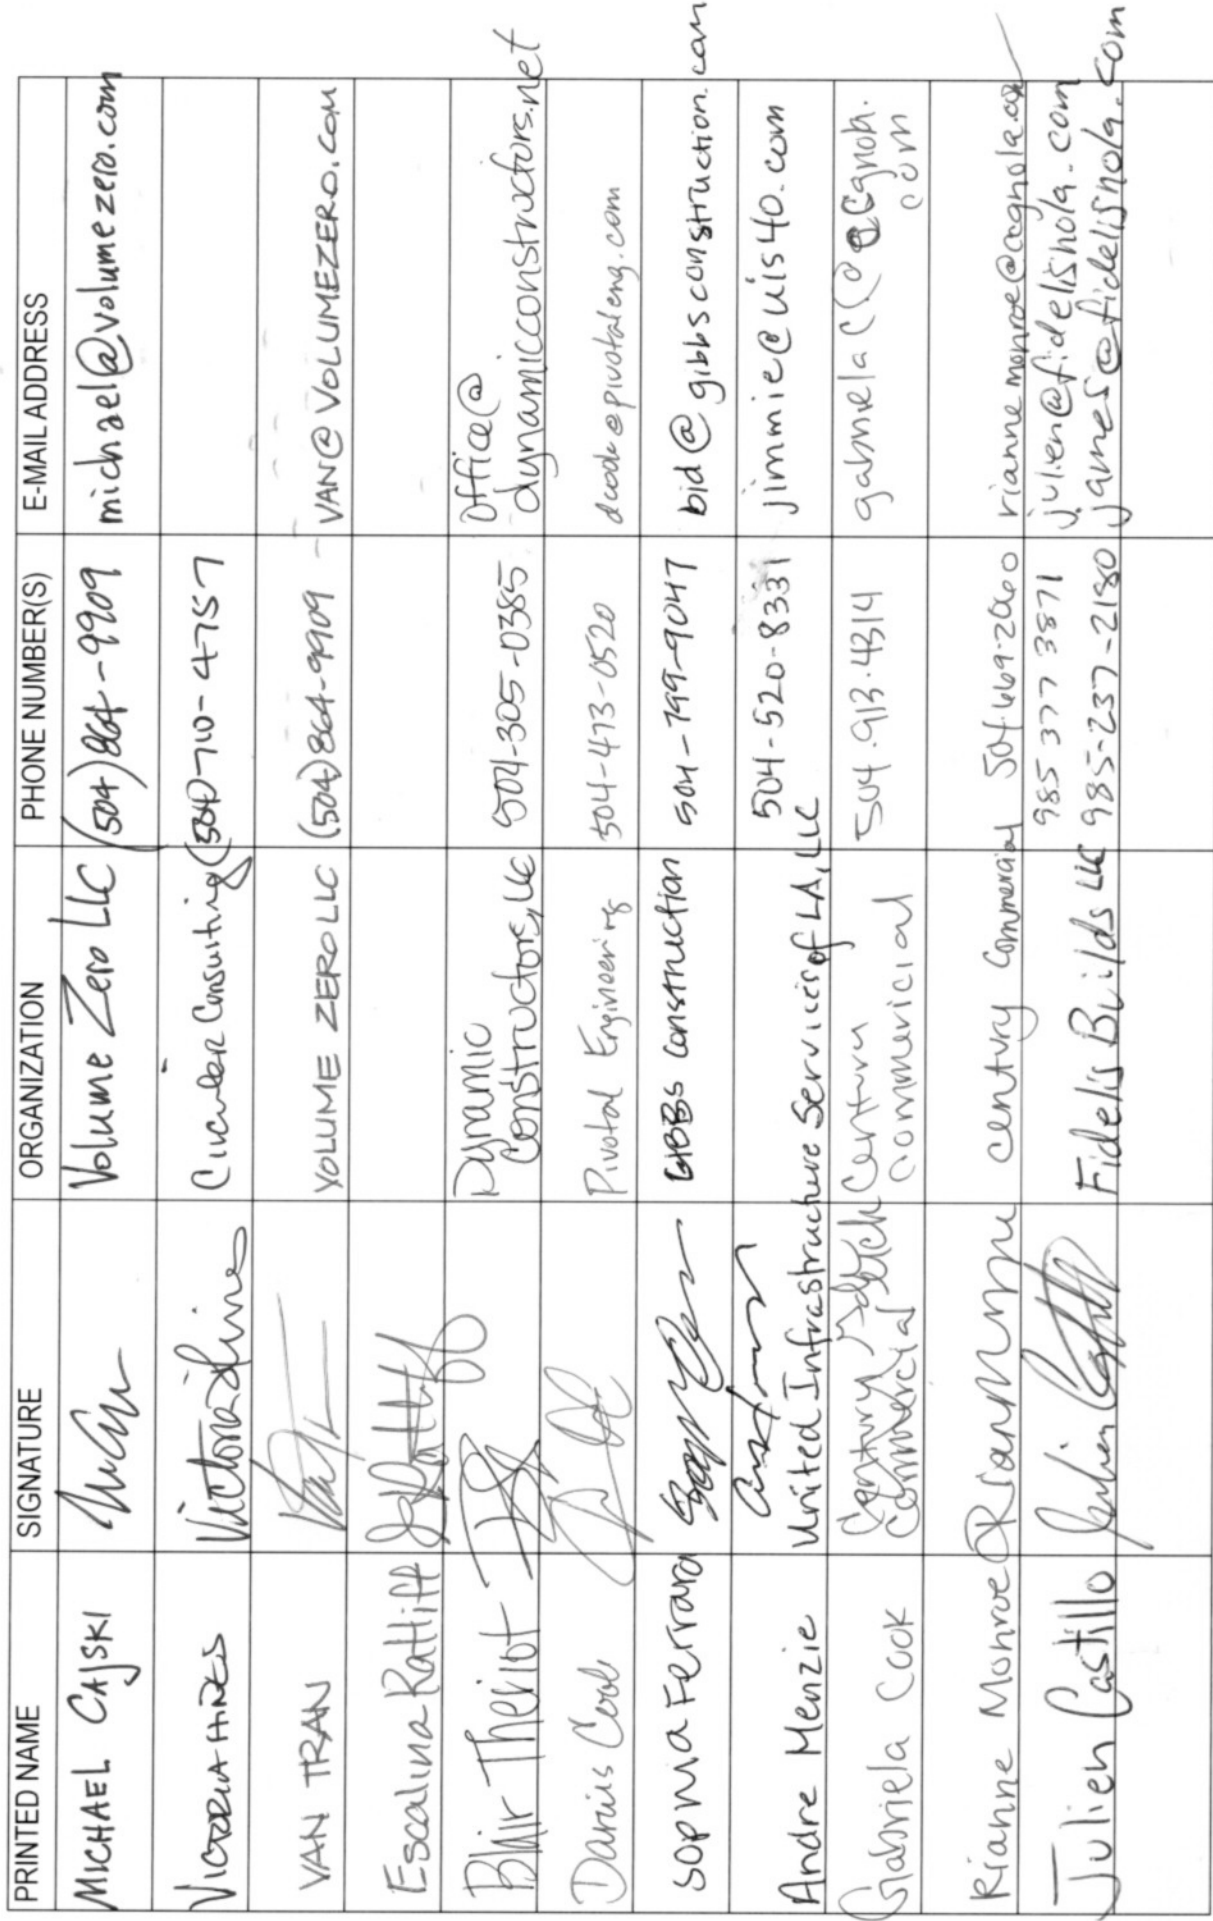 PRINTED NAME SIGNATURE ORGANIZATION PHONE NUMBER(S) E-MAIL ADDRESS
MICHAEL CAJSKI Volume Zero LLC (504) 864-9909 michael@volumezero.com
VICTORIA HINES Victoria Hines Circular Consulting (504) 710-4757
VAN TRAN VOLUME ZERO LLC (504) 864-9909 VAN@VOLUMEZERO.COM
Escalina Ratliff
Blair Theriot Dynamic Constructors, LLC 504-305-0385 office@
dynamicconstructors.net
Darius Cook Pivotal Engineering 504-473-0520 dcook@pivotaleng.com
Sophia Ferrara GIBBS Construction 504-799-9047 bid@gibbsconstruction.com
Andre Menzie 504-520-8331 jimmie@uis40.com
United Infrastructure Services of LA, LLC
Gabriela Cook Century Century 504.913.4314 gabriela @ccgnola.
Commercial commericial com
Rianne Monroe century commercial 504 669-2060 riannemonroe@ccgnola.com
985 377 3871 julien@fidelisnola.com
Julien Castillo Fidelis Builds LLC 985-237-2180 james@fidelisnola.com